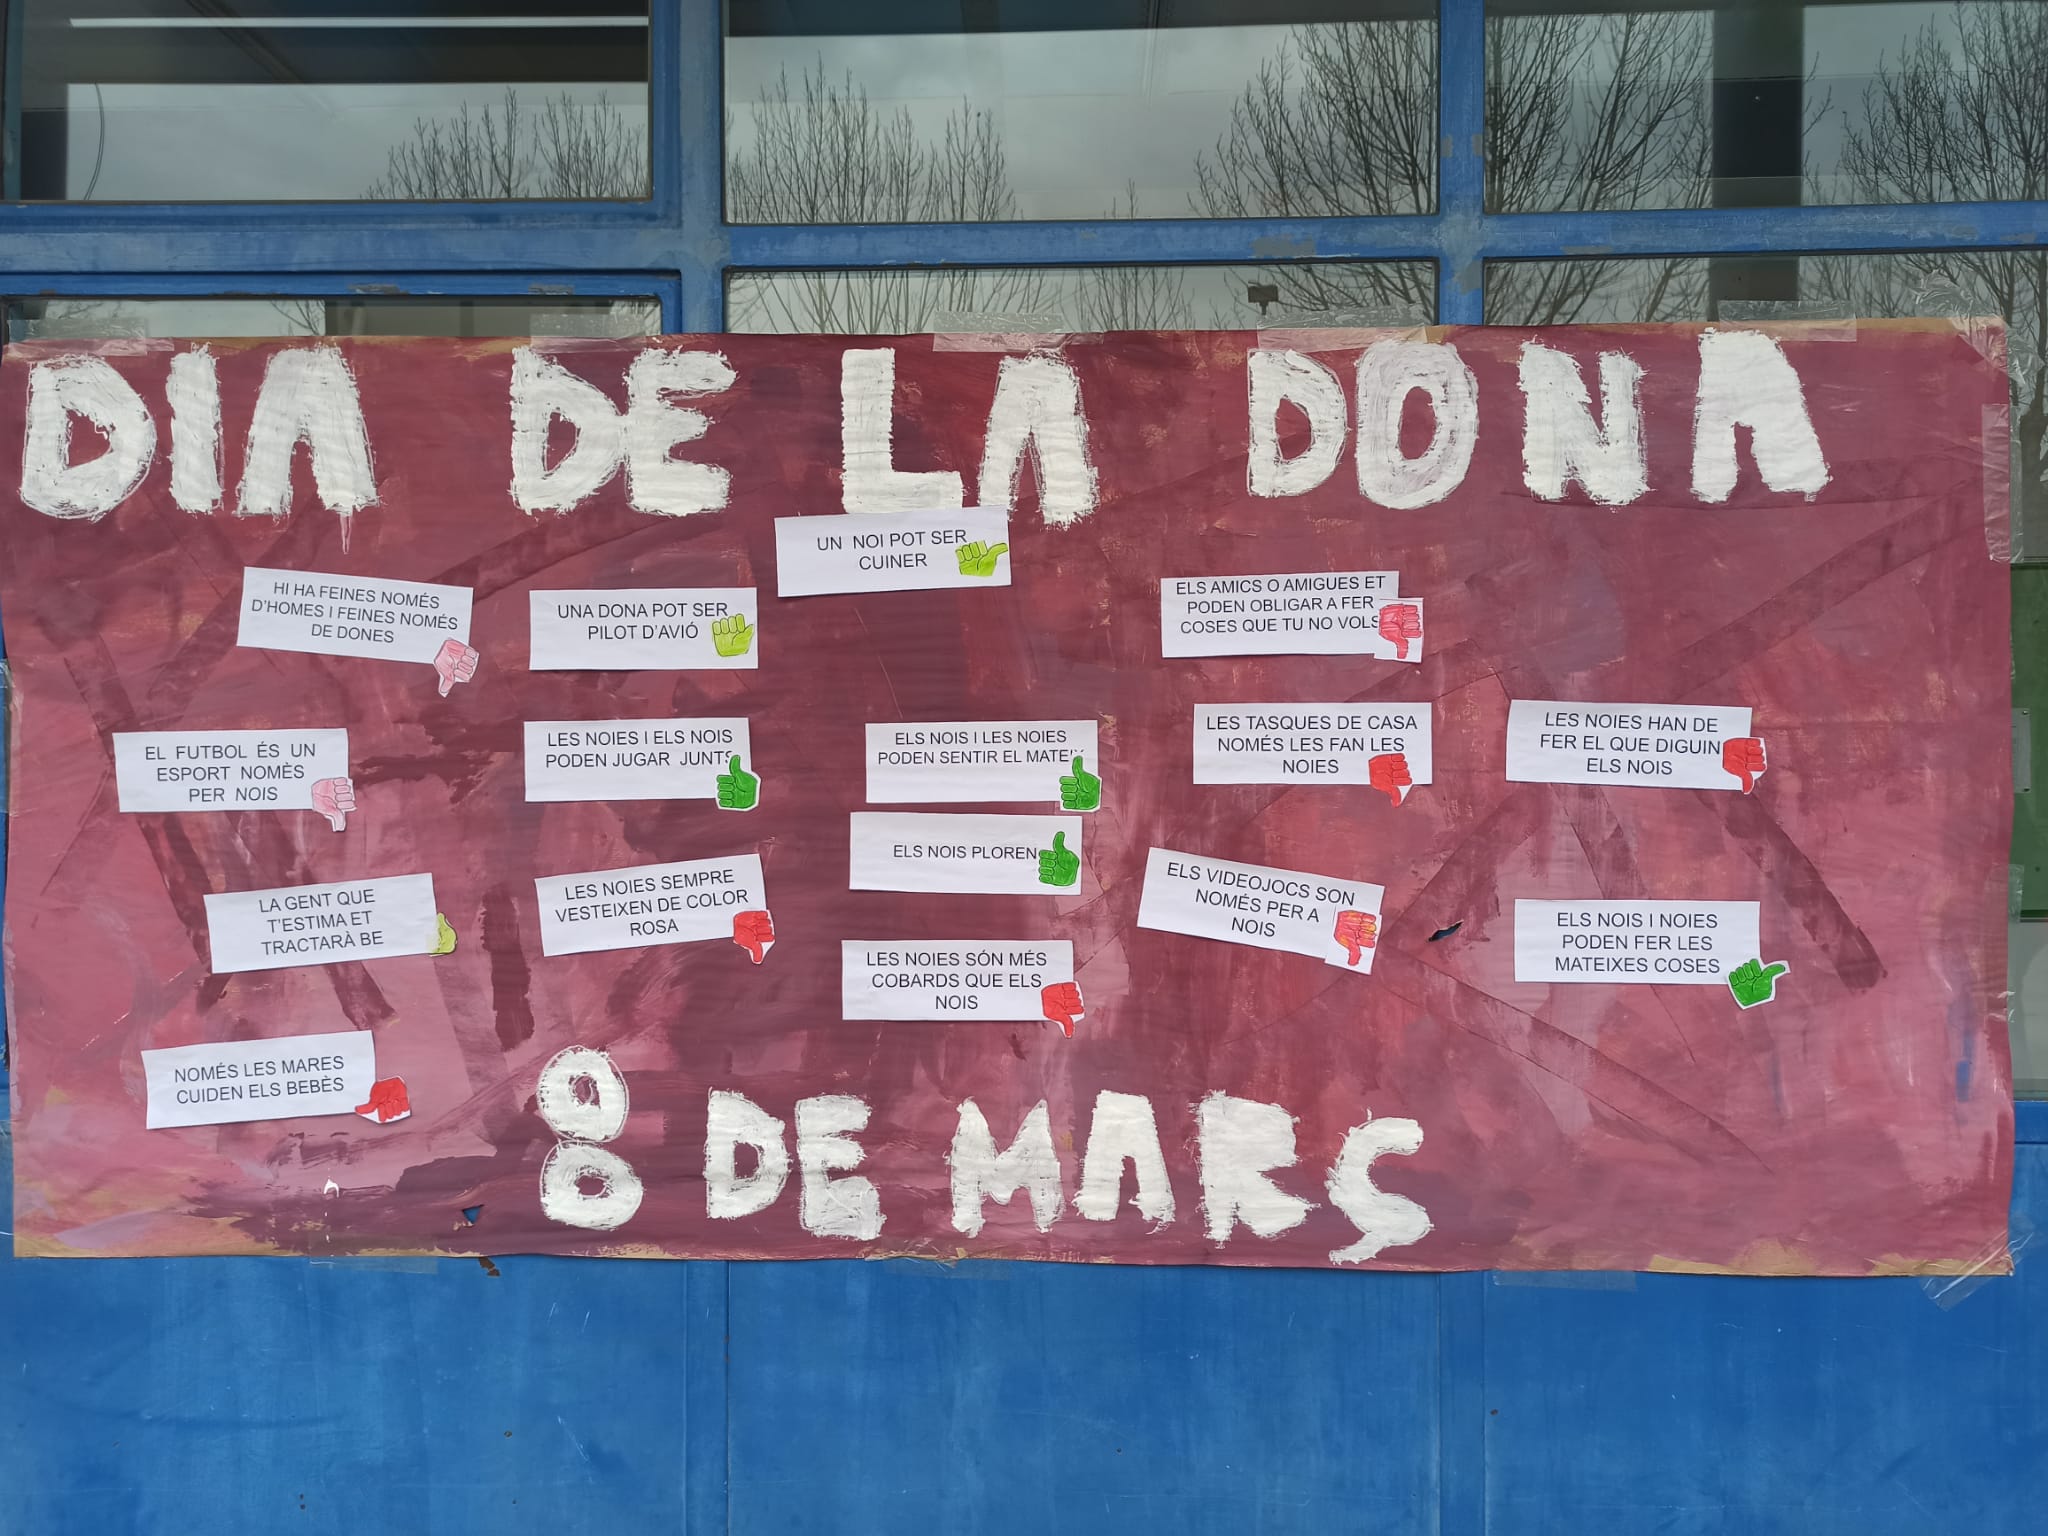 DIA DE LA DONA
UN NOI POT SER
CUINER
HI HA FEINES NOMÉS
D'HOMES I FEINES NOMÉS
DE DONES
UNA DONA POT SER
PILOT D'AVIÓ
ELS AMICS O AMIGUES ET
PODEN OBLIGAR A FER
COSES QUE TU NO VOLS
EL FUTBOL ÉS UN
ESPORT NOMÈS
PER NOIS
LES NOIES I ELS NOIS
PODEN JUGAR JUNTS
ELS NOIS I LES NOIES
PODEN SENTIR EL MATEIX
LES TASQUES DE CASA
NOMÉS LES FAN LES
NOIES
LES NOIES HAN DE
FER EL QUE DIGUIN
ELS NOIS
ELS NOIS PLOREN
LA GENT QUE
T'ESTIMA ET
TRACTARÀ BE
LES NOIES SEMPRE
VESTEIXEN DE COLOR
ROSA
LES NOIES SÓN MÉS
COBARDS QUE ELS
NOIS
ELS VIDEOJOCS SON
NOMÉS PER A
NOIS
ELS NOIS I NOIES
PODEN FER LES
MATEIXES COSES
NOMÉS LES MARES
CUIDEN ELS BEBÈS
8 DE MARÇ